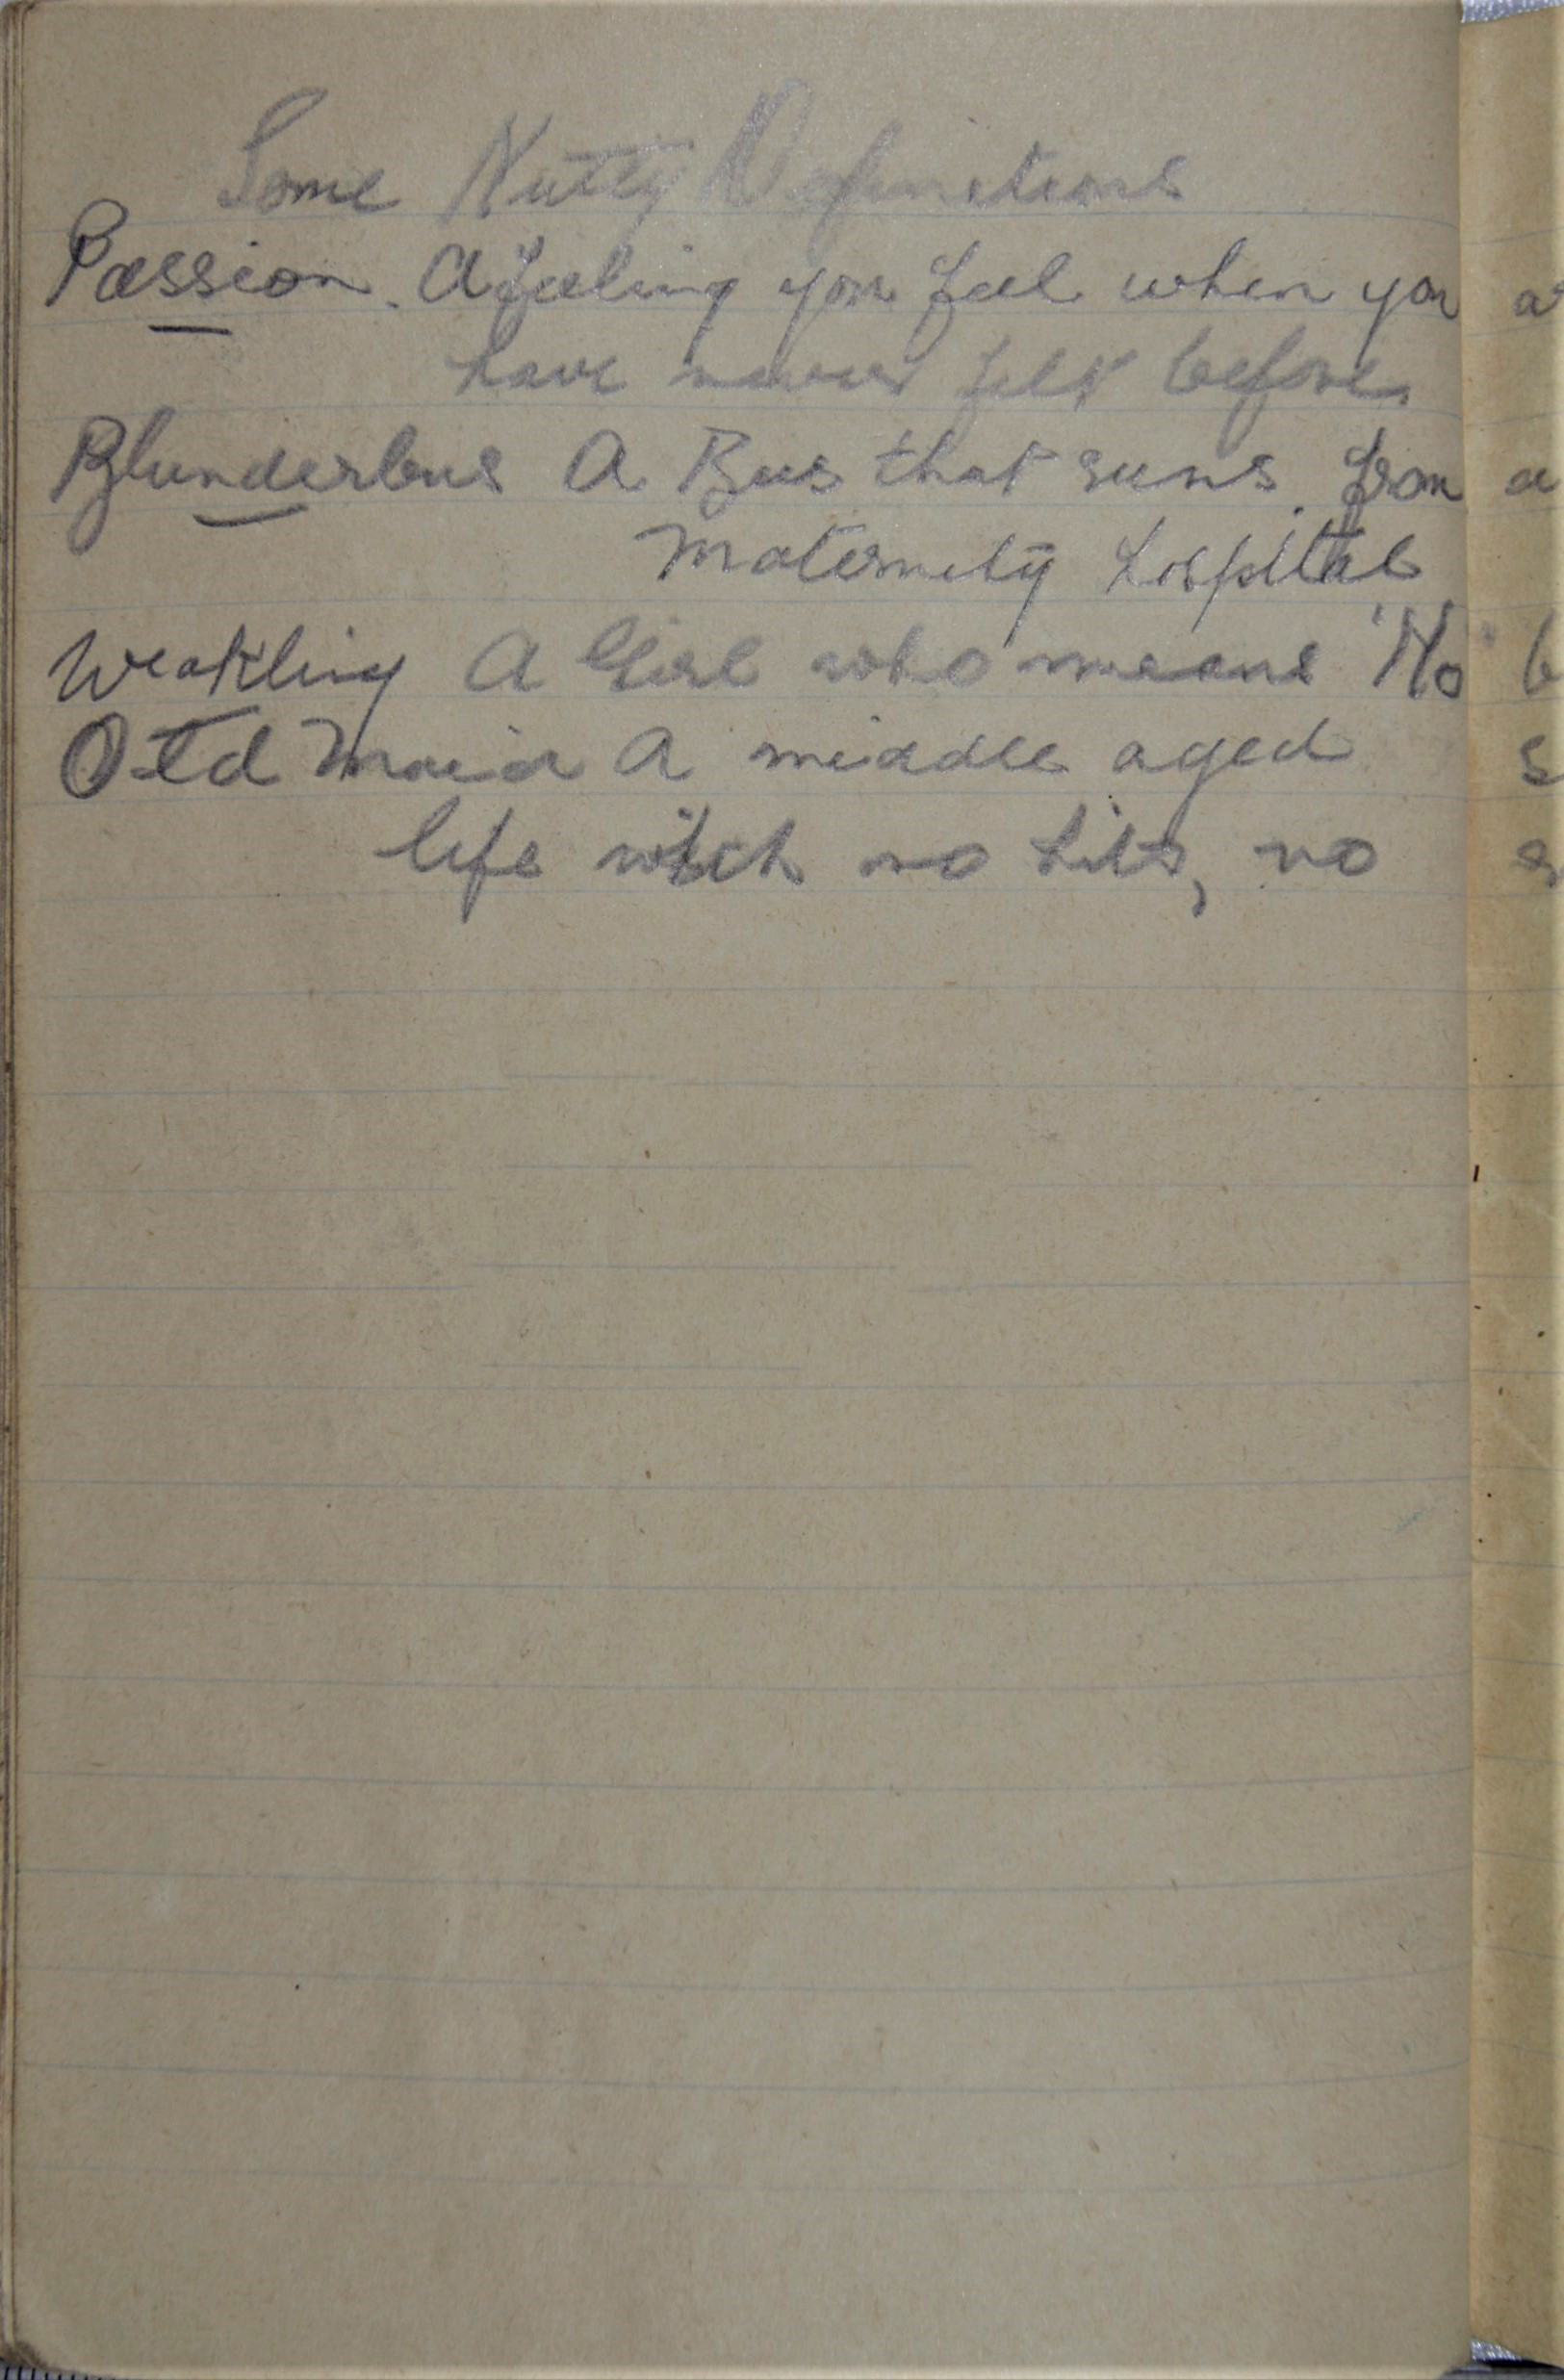 Some Nutty Definetions
Passion. A feeling you feel when you
have never felt before.
Blunderbus A Bus that runs from
Maternity hospital
Weakling A Girl who means "No"
Old Maid A middle aged
life with no hits, no